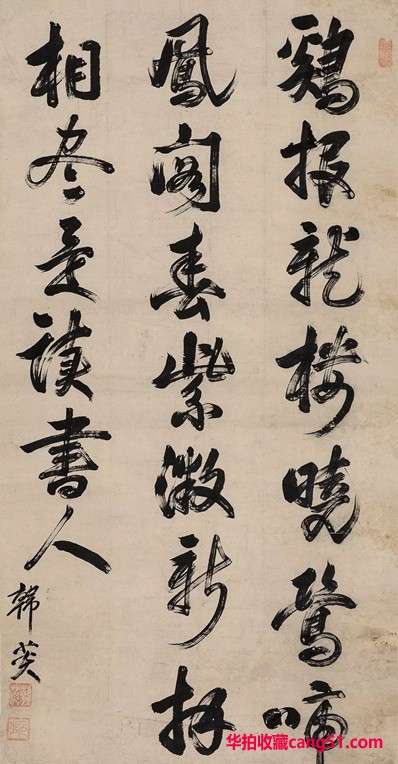 鷄報龍樓曉鶯啼
鳳閣春紫微新拜
相盡是讀書人
韓菼
华拍收藏cang51.com